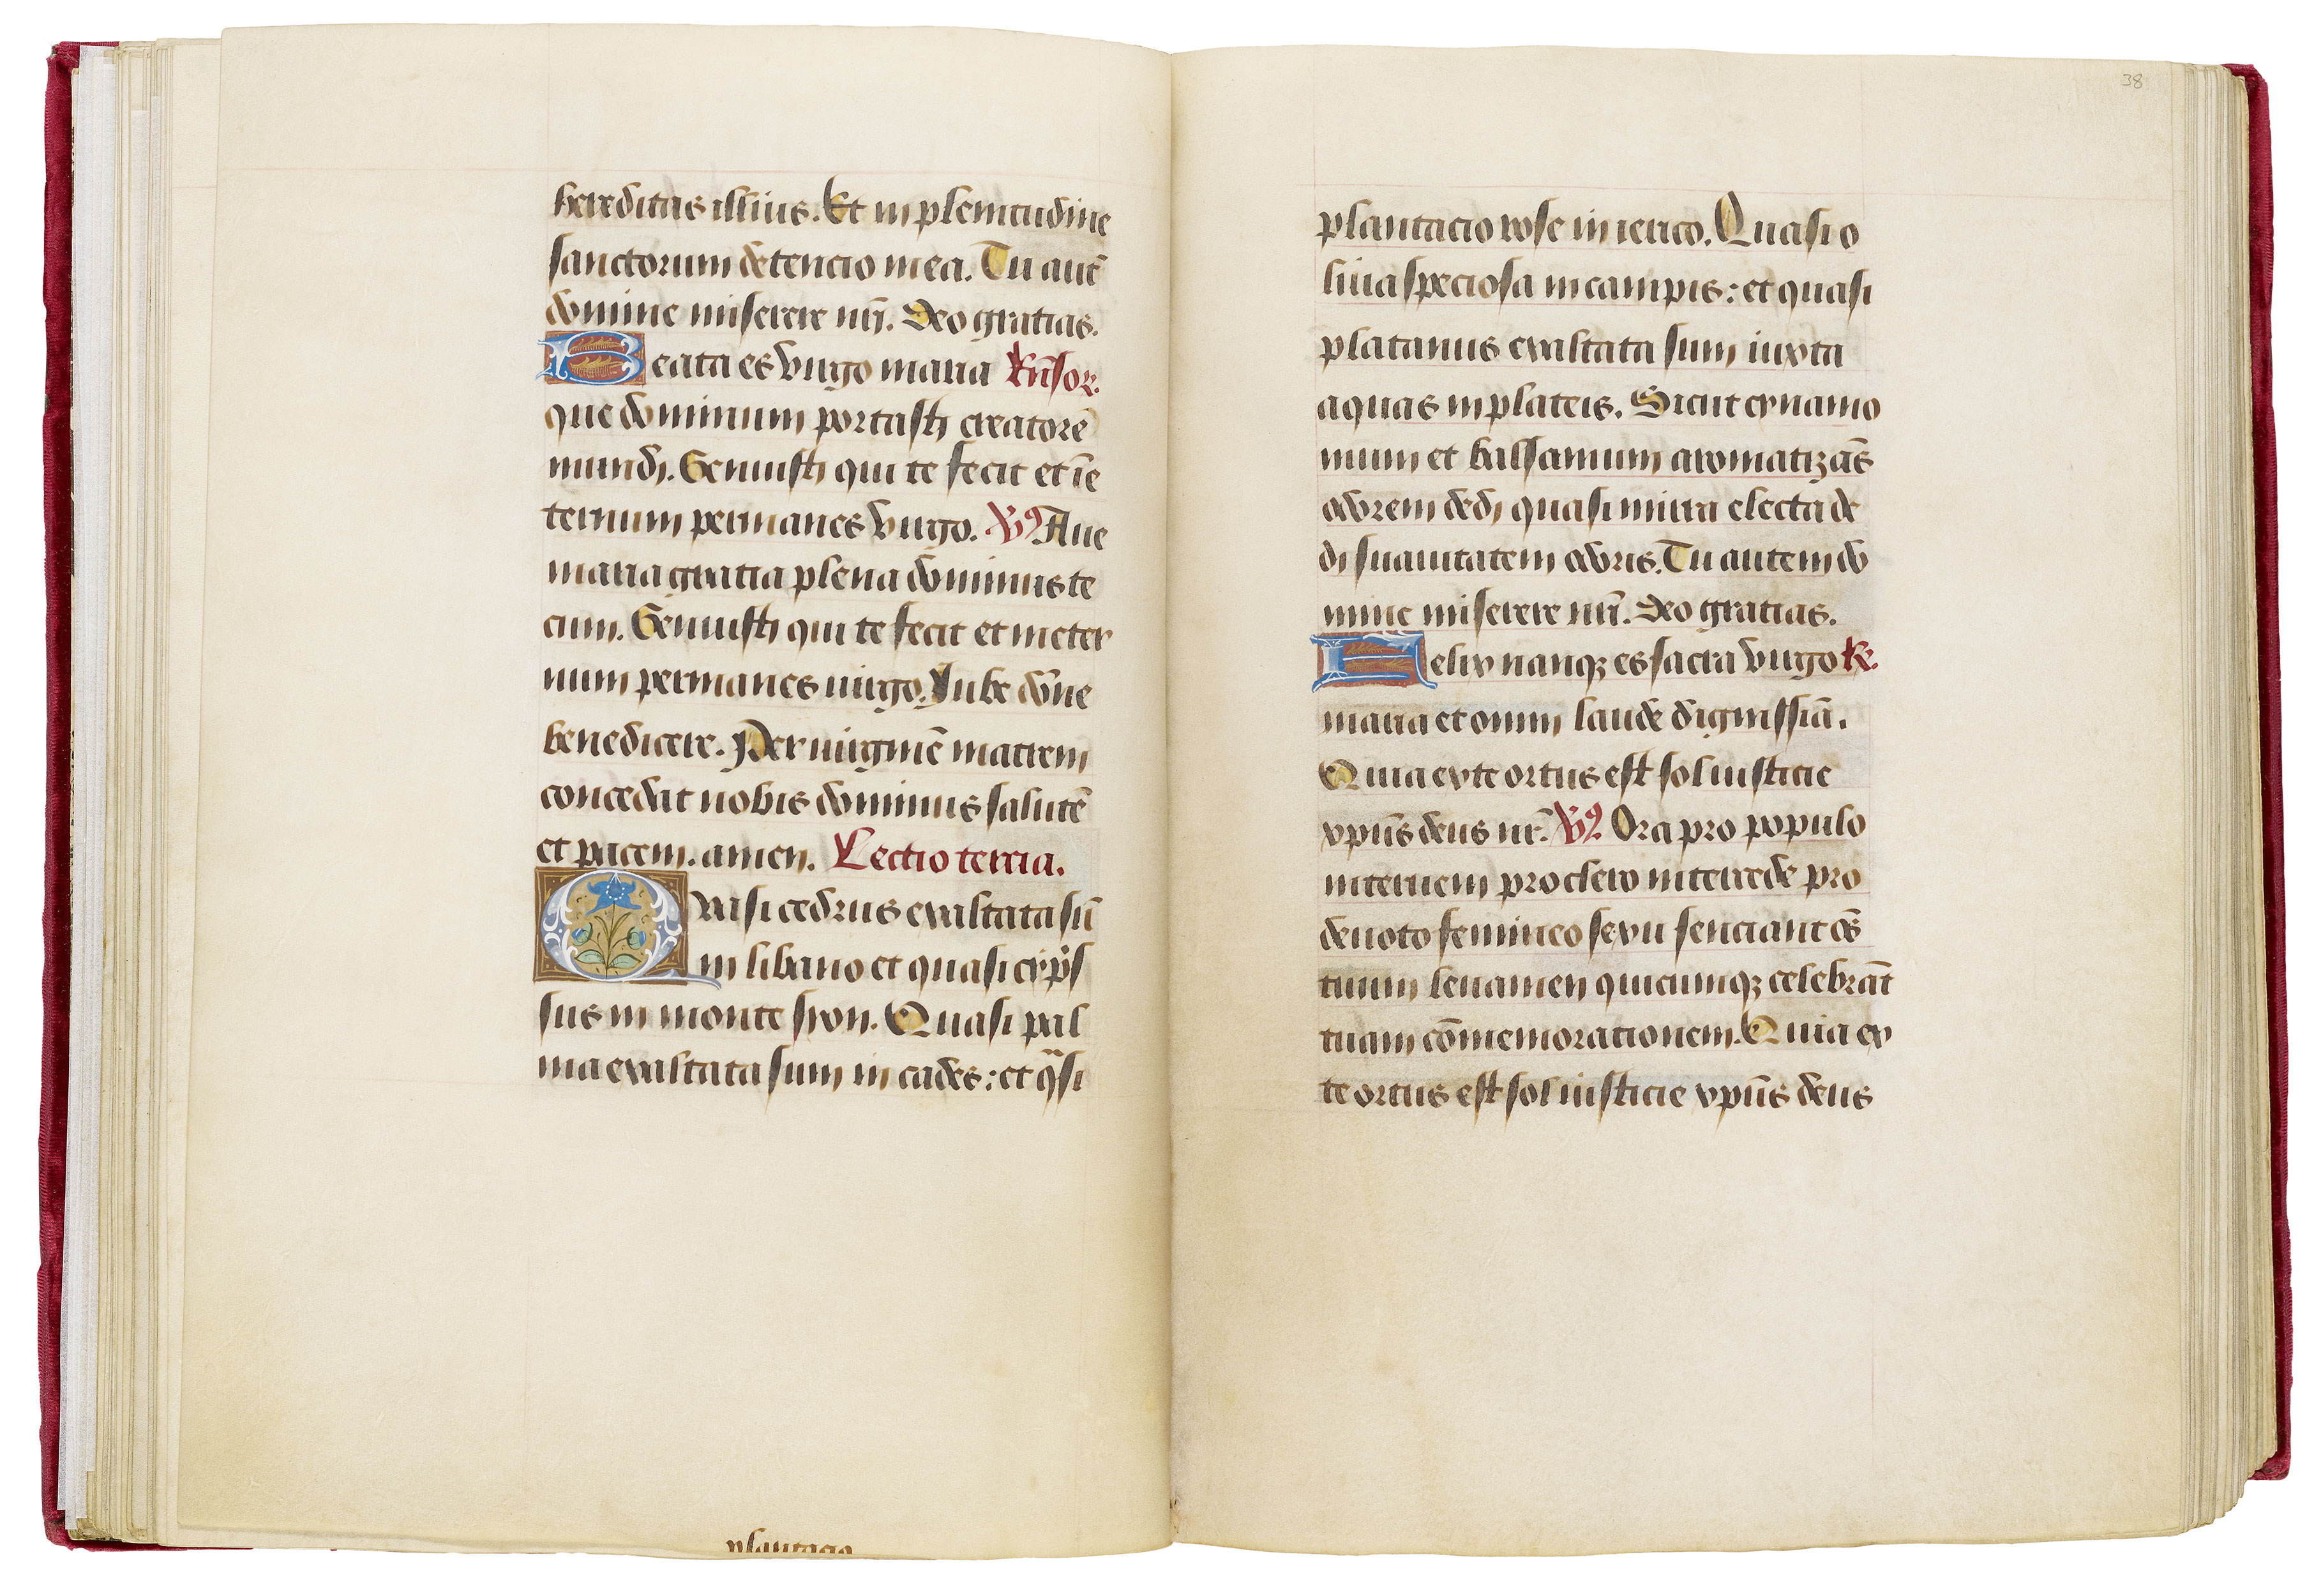 hereditas illius. Et in plenitudine
sanctorum detencio mea. Tu autē
domine miserere nr̄i. Deo gratias.
Beata es virgo maria
que dominum portasti creatorē
mundi. Genuisti qui te fecit et īe
ternum permanes virgo. V Aue
maria gratia plena dominus te
cum. Genuisti qui te fecit et ineter
num permanes uirgo. Jube dōne
benedicere. Per uirginē matrem
concedat nobis dominus salutē
et pacem. amen. Lectio tercia.
Quasi cedrus exaltata sū
in libano et quasi cyp̄s
sus in monte syon. Quasi pal
ma exaltata sum in cades: et qⁱsi
plantacio
38
plantacio rose in ierico. Quasi o
liua speciosa in campis: et quasi
platanus exaltata sum iuxta
aquas in plateis. Sicut cynamo
mum et balsamum aromatizās
odorem dedi quasi mirra electa de
di suauitatem odoris. Tu autem do
mine miserere nr̄i. Deo gratias.
Felix nanqꝫ es sacra virgo R.
maria et omni laude dignissiā.
Quia ex te ortus est sol iusticie
xpūs deus nr̄. V Ora pro populo
interuem pro clero intercede pro
deuoto femineo sexu senciant oēs
tuum leuamen quicumqꝫ celebrāt
tuam cōmemorationem. Quia ex
te ortus est sol iusticie xpūs deus